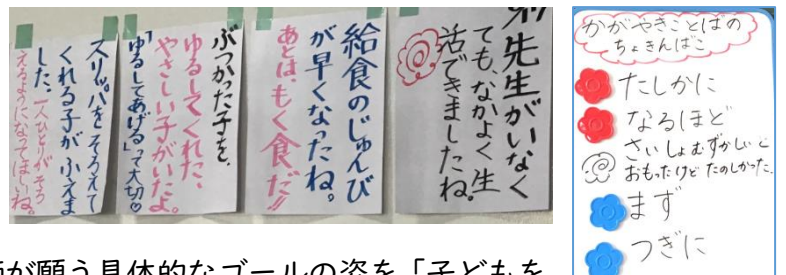 先生がいなく
ても、なかよく生
活できましたね。
給食のじゅんび
が早くなったね。
あとは、もく食だ!!
ぶつかった子を、
ゆるしてくれた、
やさしい子がいたよ。
「ゆるしてあげる」って大切♡
スリッパをそろえて
くれる子がふえま
した。一人ひとりがそろ
えるようになってほしいね。
かがやきことばの
ちょきんばこ
たしかに
なるほど
さいしょむずかしいと
おもったけどたのしかった。
まず
つぎに
が願う具体的なゴールの姿を「子どもを